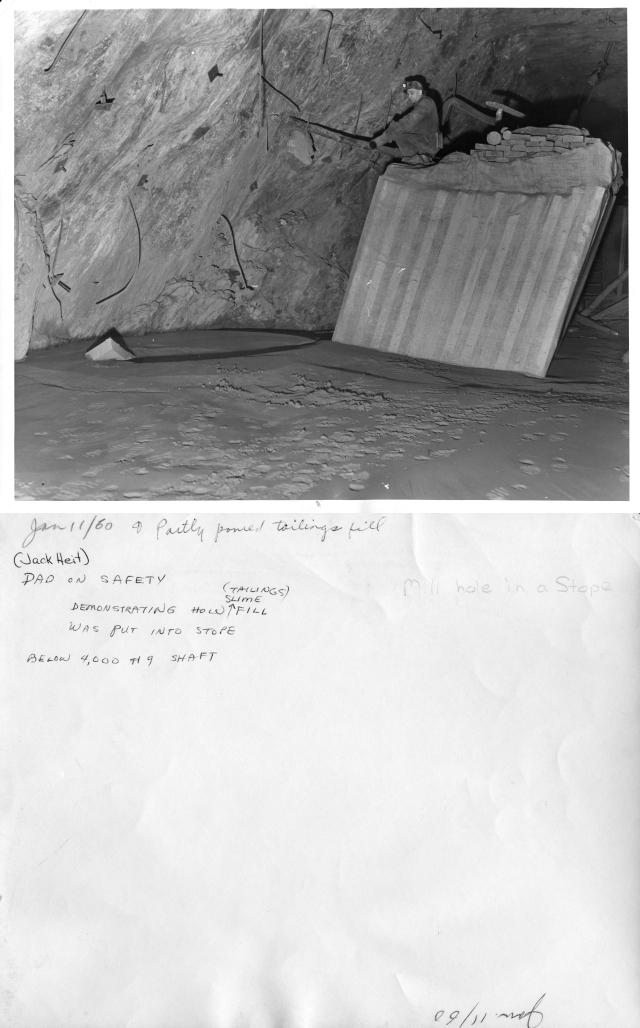 Jan 11/60 Partly poured tailings fill
(Jack Heit)
DAD ON SAFETY
Mill hole in a Stope
(TAILINGS)
SLIME
DEMONSTRATING HOW ↑ FILL
WAS PUT INTO STOPE
BELOW 4,000 #9 SHAFT
Jan. 11/60